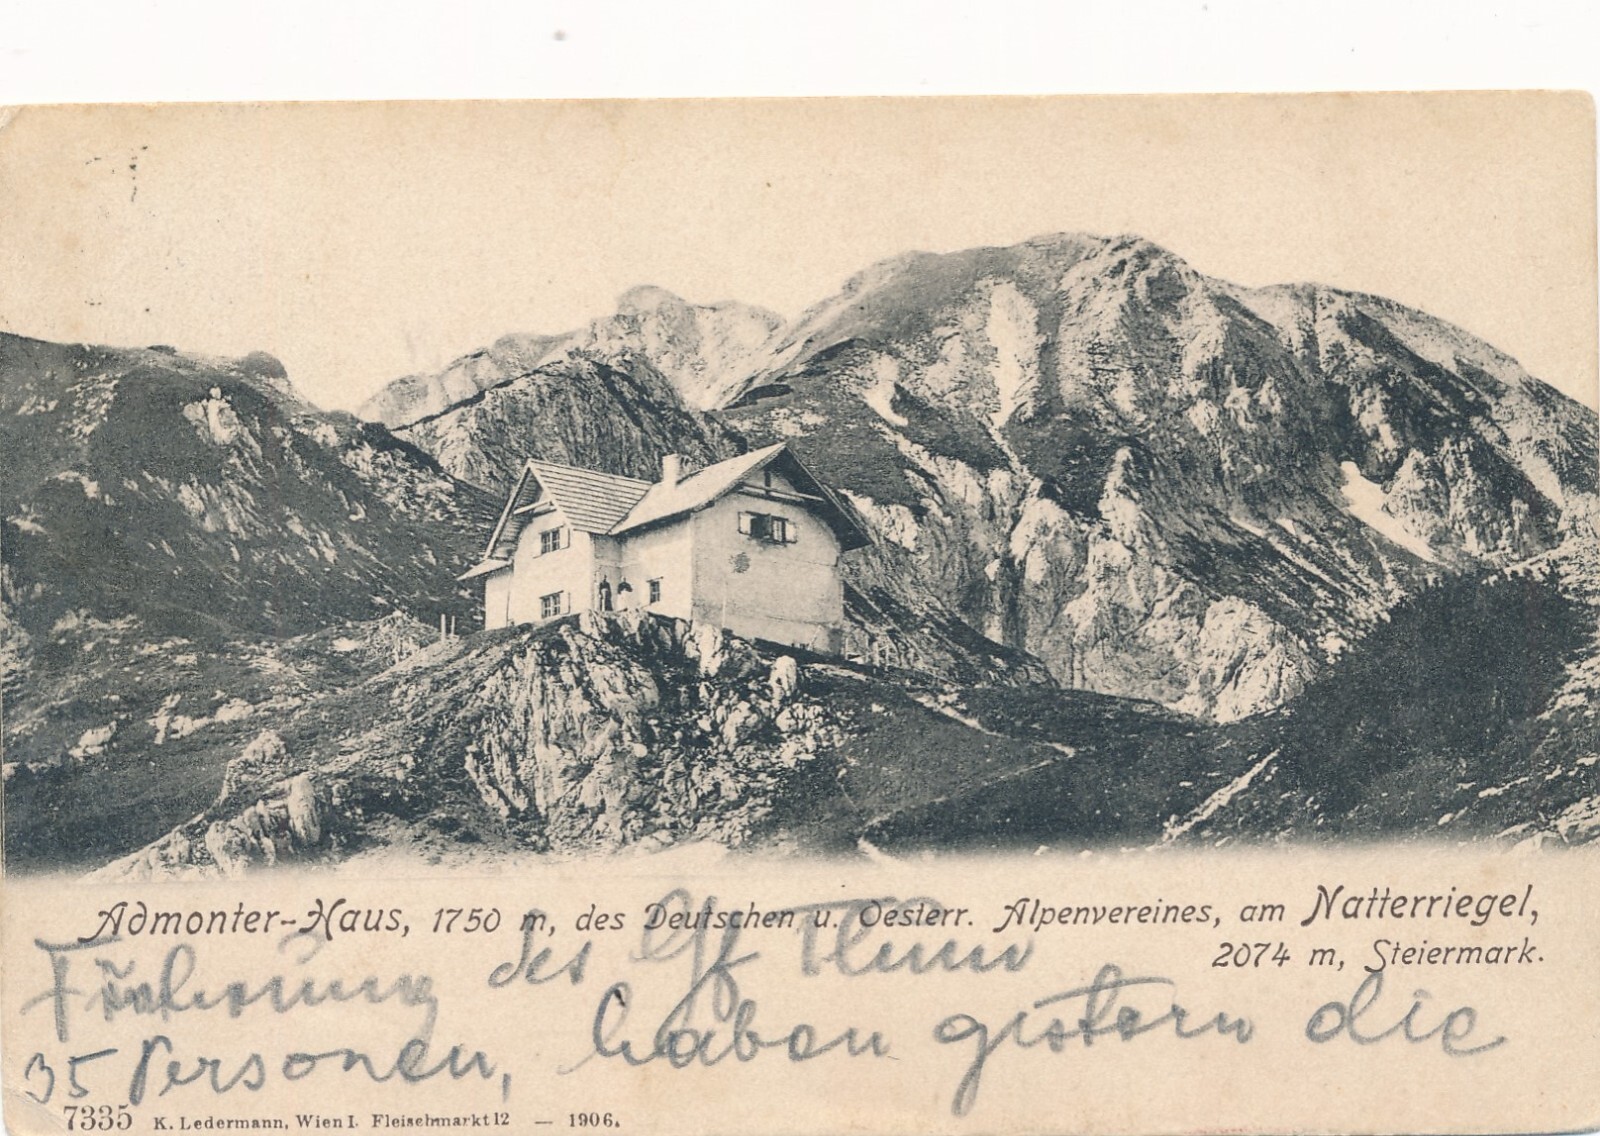 Admonter-Haus, 1750 m, des Deutschen u. Oesterr. Alpenvereines, am Natterriegel,
2074 m, Steiermark.
des
35 Personen, haben gestern die
7335 K. Ledermann, Wien I. Fleischmarkt 12 — 1906.